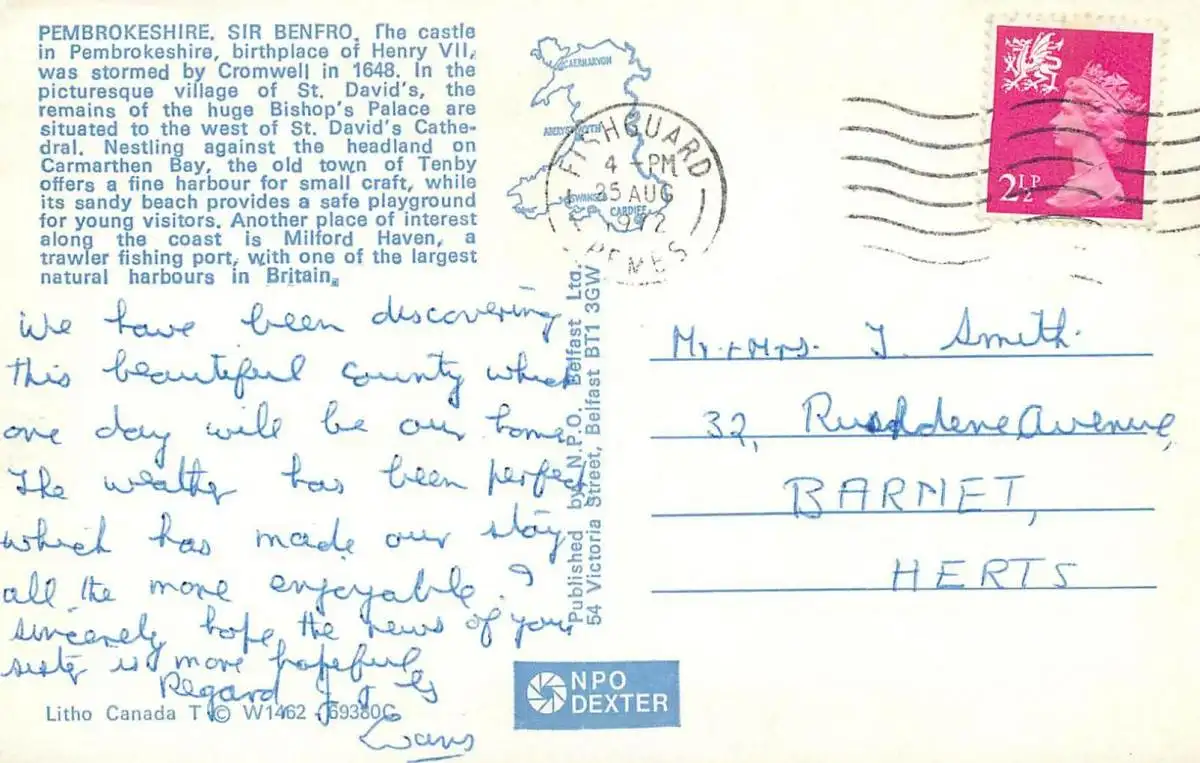 PEMBROKESHIRE, SIR BENFRO, The castle
in Pembrokeshire, birthplace of Henry VII,
was stormed by Cromwell in 1648. In the
picturesque village of St. David's, the
remains of the huge Bishop's Palace are
situated to the west of St. David's Cathe-
dral. Nestling against the headland on
Carmarthen Bay, the old town of Tenby
offers a fine harbour for small craft, while
its sandy beach provides a safe playground
for young visitors. Another place of interest
along the coast is Milford Haven, a
trawler fishing port, with one of the largest
natural harbours in Britain.
We have been discovering
this beautiful county which
one day will be our home.
The weather has been perfect
which has made our stay
all the more enjoyable. I
sincerely hope the news of your
sister is more hopeful
Regard
Evans
Litho Canada T © W1462 - 69380C
CAERNARVON
ABERYSTWYTH
SWANSEA
CARDIFF
FISHGUARD
4 - PM
25 AUG
1972
PEMBS
Published by N.P.O. Belfast Ltd.
54 Victoria Street, Belfast BT1 3GW
NPO
DEXTER
2½P
Mr. + Mrs. J. Smith.
32, Avenue,
BARNET,
HERTS